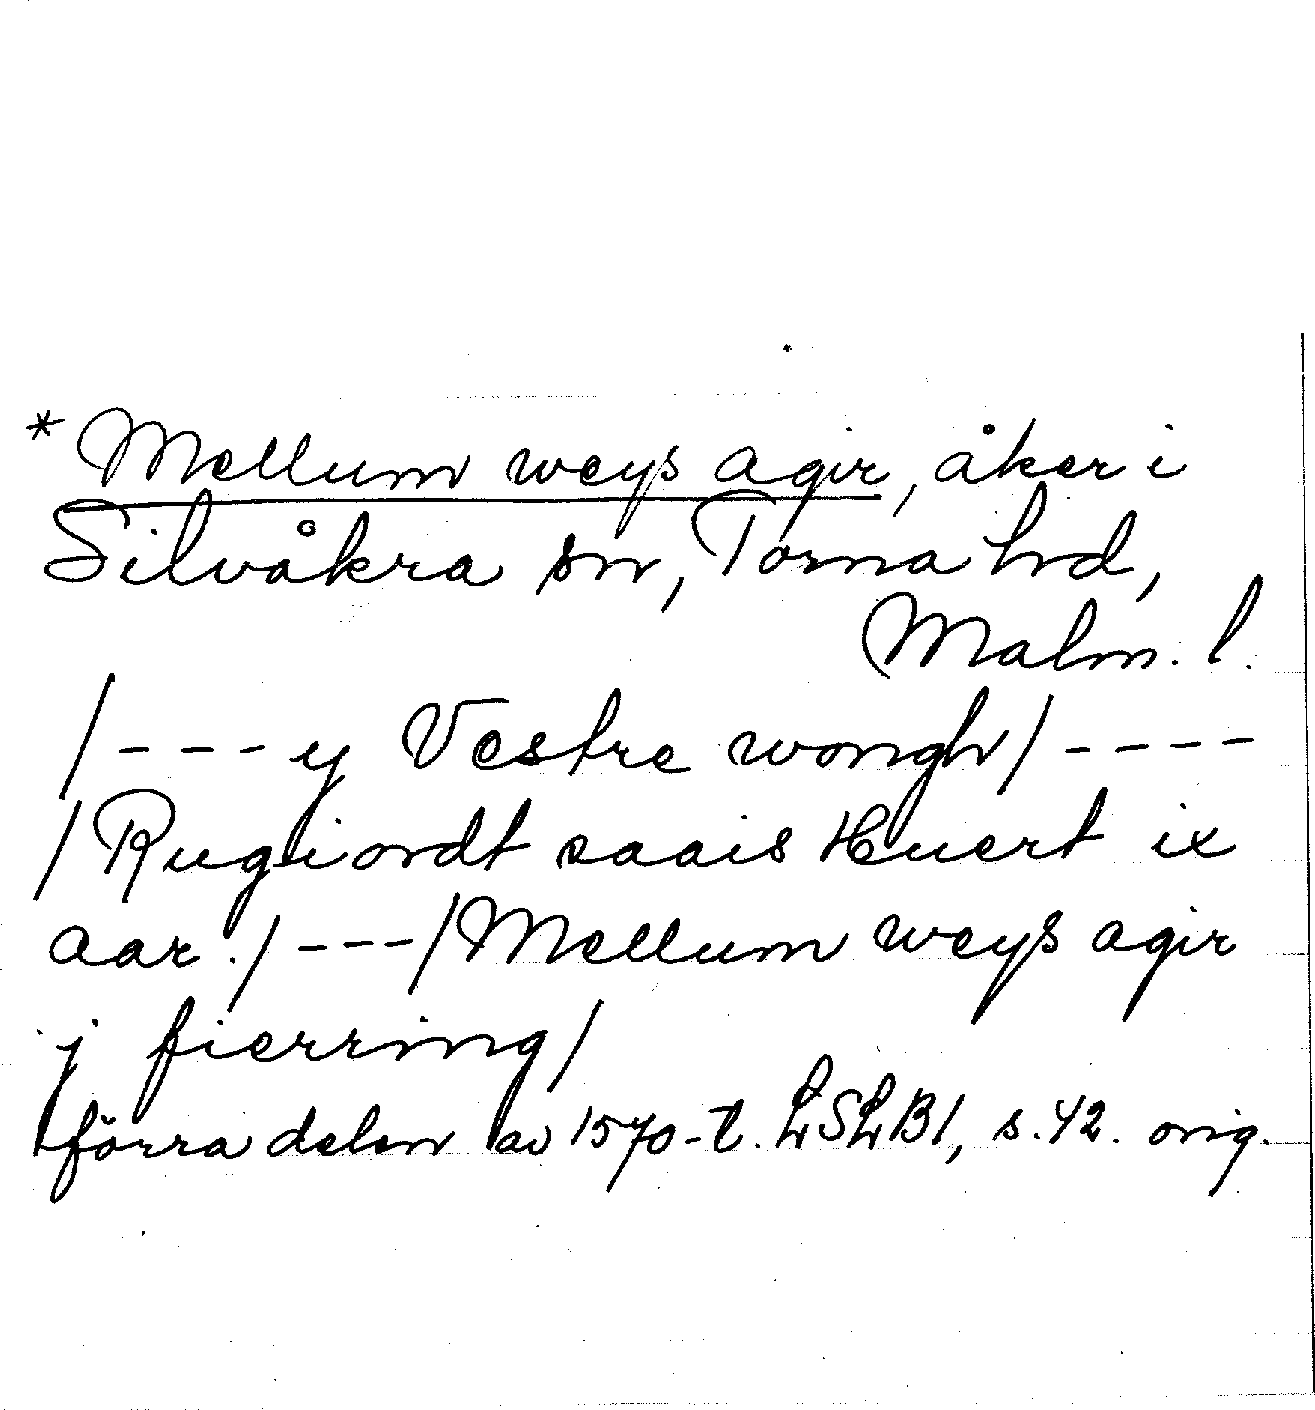 * Mellum weys agir, åker i
Silvåkra sn, Torna hd,
Malm. l.
/---y Vestre wongh/----
/Rugiordt saais Huert ix
aar./---/Mellum weys agir
j fierring/
förra delen av 1570-t. LSLB1, s. 42. orig.